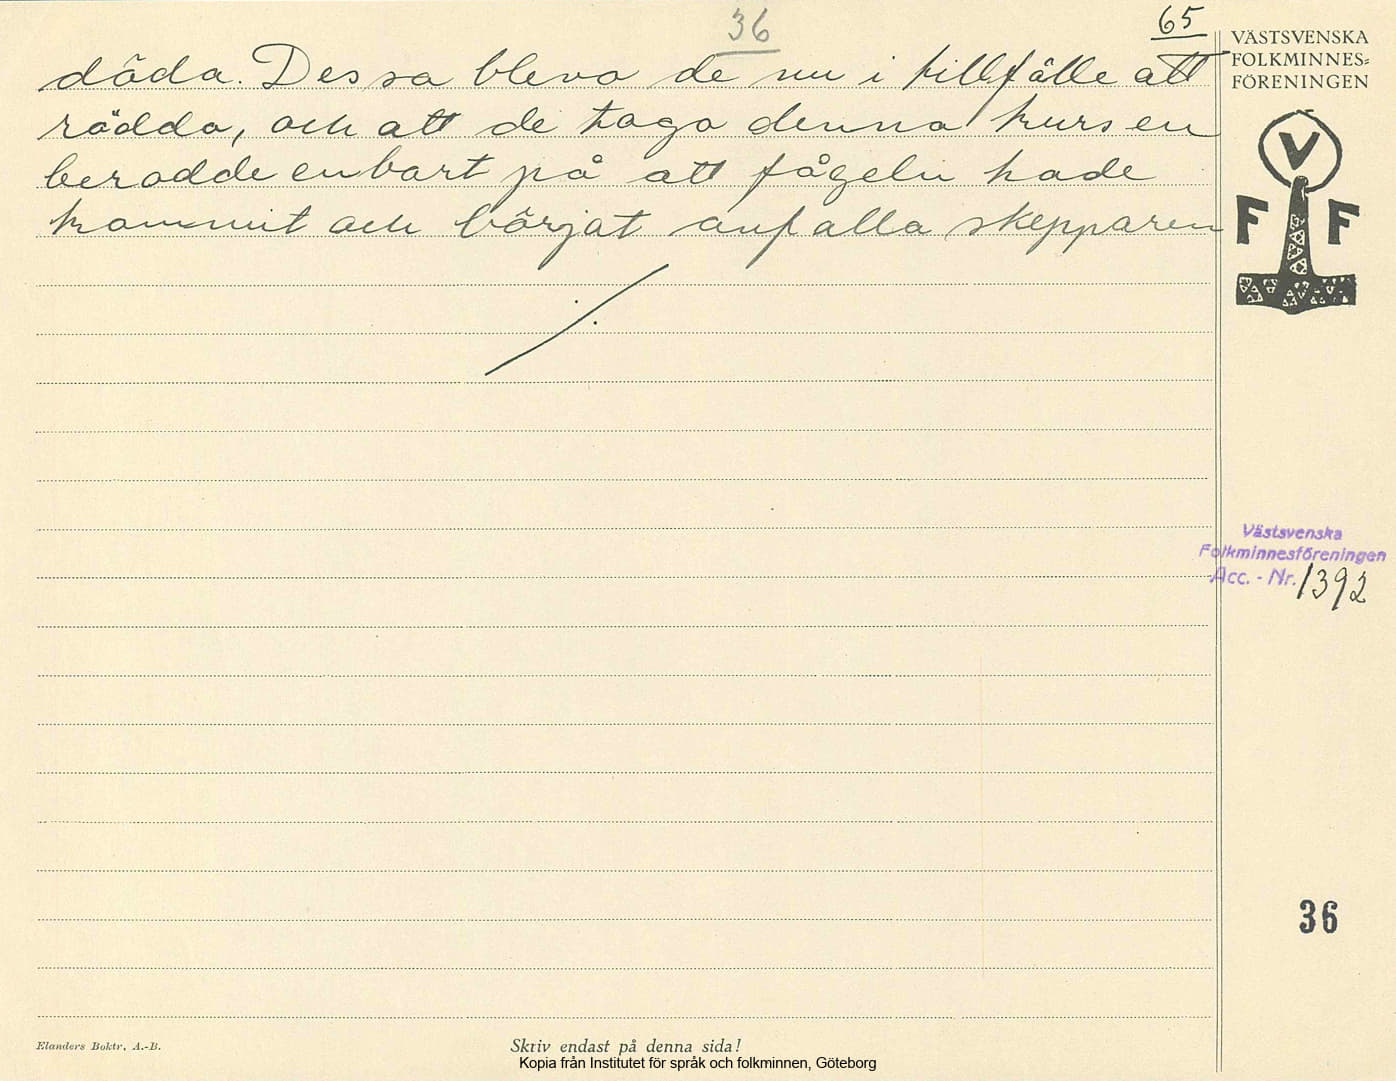 36
65
döda. Dessa blevo de nu i tillfälle att
rädda, och att de togo denna kursen
berodde enbart på att fågeln hade
kommit och börjat anfalla skepparen
VÄSTSVENSKA
FOLKMINNES=
FÖRENINGEN
V
F F
Västsvenska
Folkminnesföreningen
Acc. - Nr. 1392
36
Elanders Boktr. A.-B.
Skriv endast på denna sida!
Kopia från Institutet för språk och folkminnen, Göteborg